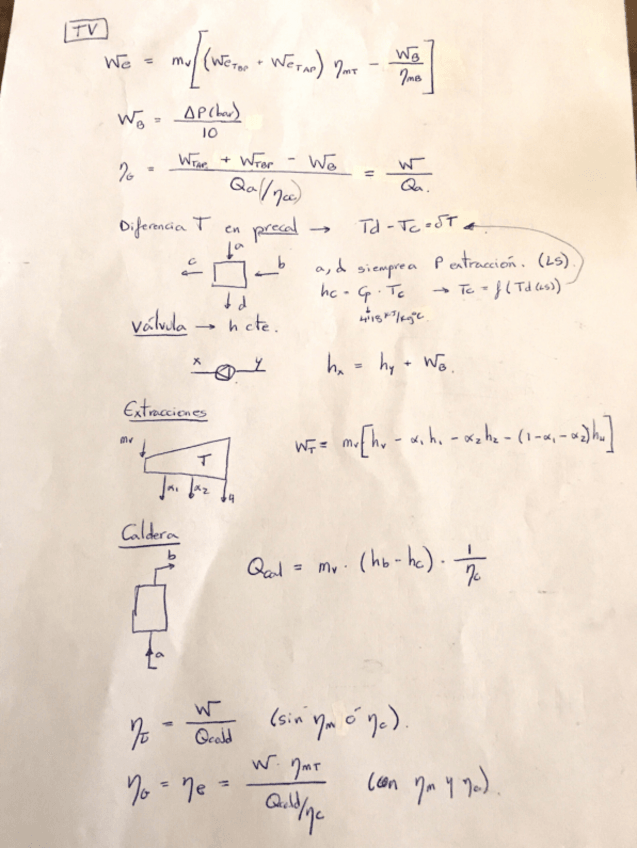 TV
We = mv[(We_TBP + We_TAP) η_mT − W_B/η_mB]
W_B = ΔP(bar)/10
η_G = (W_TAP + W_TBP − W_B)/(Qa(/η_cc)) = W/Qa.
Diferencia T en precal → Td − Tc = δT
a
c b
d
a, d siempre a P extracción. (LS).
hc = Cp · Tc → Tc = f(Td(LS))
4'18 KJ/Kg°C
Válvula → h cte.
x y
hx = hy + W_B.
Extracciones
mv
T
α1 α2 4
W_T = mv[hv − α1 h1 − α2 h2 − (1−α1−α2)h4]
Caldera
b
a
Qcal = mv · (hb − hc) · 1/ηc
η_I = W/Qcald (sin ηm ó ηc).
η_G = ηe = (W · η_mT)/(Qcald/ηc) (con ηm y ηc).